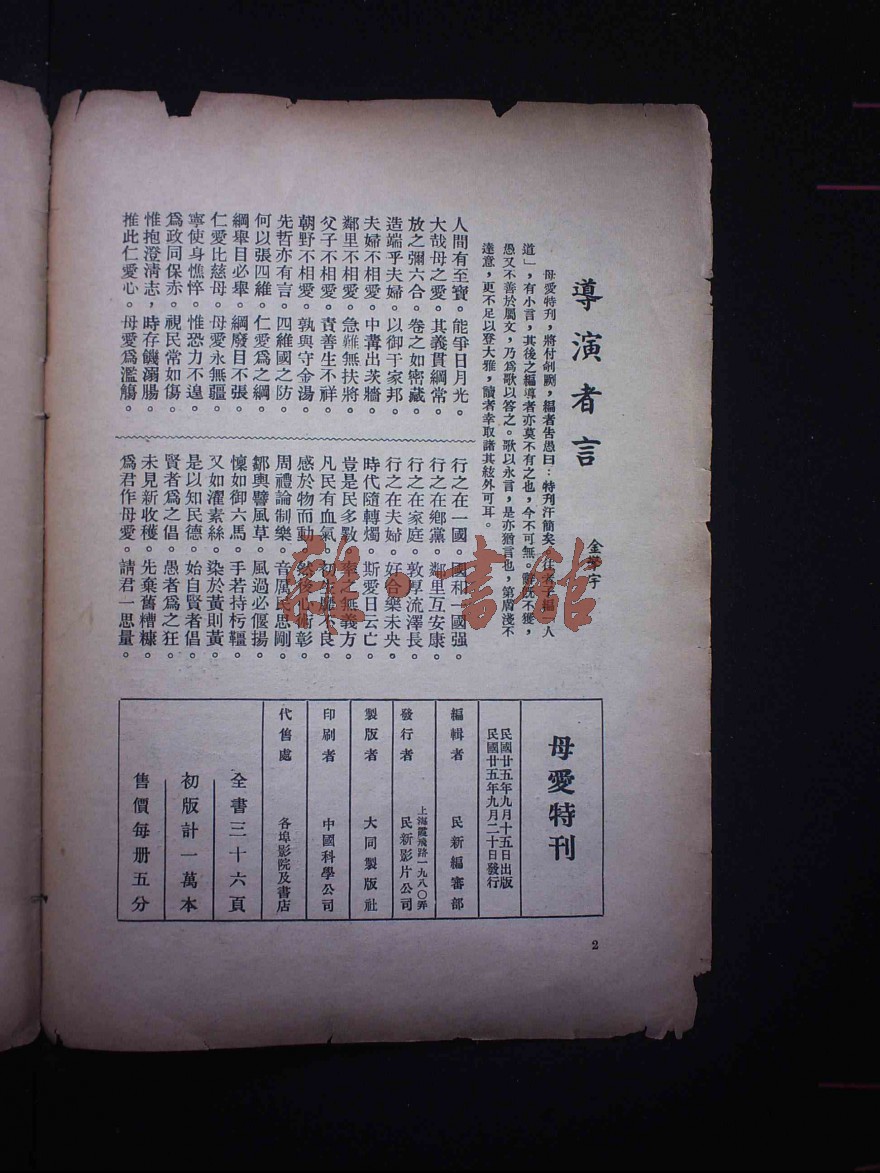 導演者言
金擎宇
母愛特刊，將付剞劂，編者告愚曰：特刊汗簡矣，
道」，有小言，其後之編導者亦莫不有之也，今不可無。辭既不獲，
愚又不善於屬文，乃爲歌以答之。歌以永言，是亦猶言也，第膚淺不
達意，更不足以登大雅，讀者幸取諸其絃外可耳。
人間有至寶。能爭日月光。
大哉母之愛。其義貫綱常。
放之彌六合。卷之如密藏。
造端乎夫婦。以御于家邦。
夫婦不相愛。中冓出茨牆。
鄰里不相愛。急難無扶將。
父子不相愛。責善生不祥。
朝野不相愛。孰與守金湯。
先哲亦有言。四維國之防。
何以張四維。仁愛爲之綱。
綱舉目必舉。綱廢目不張。
仁愛比慈母。母愛永無疆。
寧使身憔悴。惟恐力不遑。
爲政同保赤。視民常如傷。
惟抱澄清志，時存饑溺腸。
推此仁愛心。母愛爲濫觴。
行之在一國。國和一國强。
行之在鄉黨。鄰里互安康。
行之在家庭。敦厚流澤長。
行之在夫婦。好合樂未央。
時代隨轉燭。斯愛日云亡。
豈是民多黩。率之無義方。
凡民有血氣。初生靡不良。
感於物而動。然後心術彰。
周禮論制樂。音厲民思剛。
鄒輿譬風草。風過必偃揚。
懍如御六馬。手若持朽韁。
又如濯素絲。染於黃則黃。
是以知民德。始自賢者倡。
賢者爲之倡。愚者爲之狂。
未見新收穫。先棄舊糟糠。
爲君作母愛。請君一思量。
母愛特刊
民國廿五年九月十五日出版
民國廿五年九月二十日發行
編輯者 民新編審部
發行者 上海霞飛路一九八〇弄
民新影片公司
製版者 大同製版社
印刷者 中國科學公司
代售處 各埠影院及書店
全書三十六頁
初版計一萬本
售價每册五分
2
雜·書館